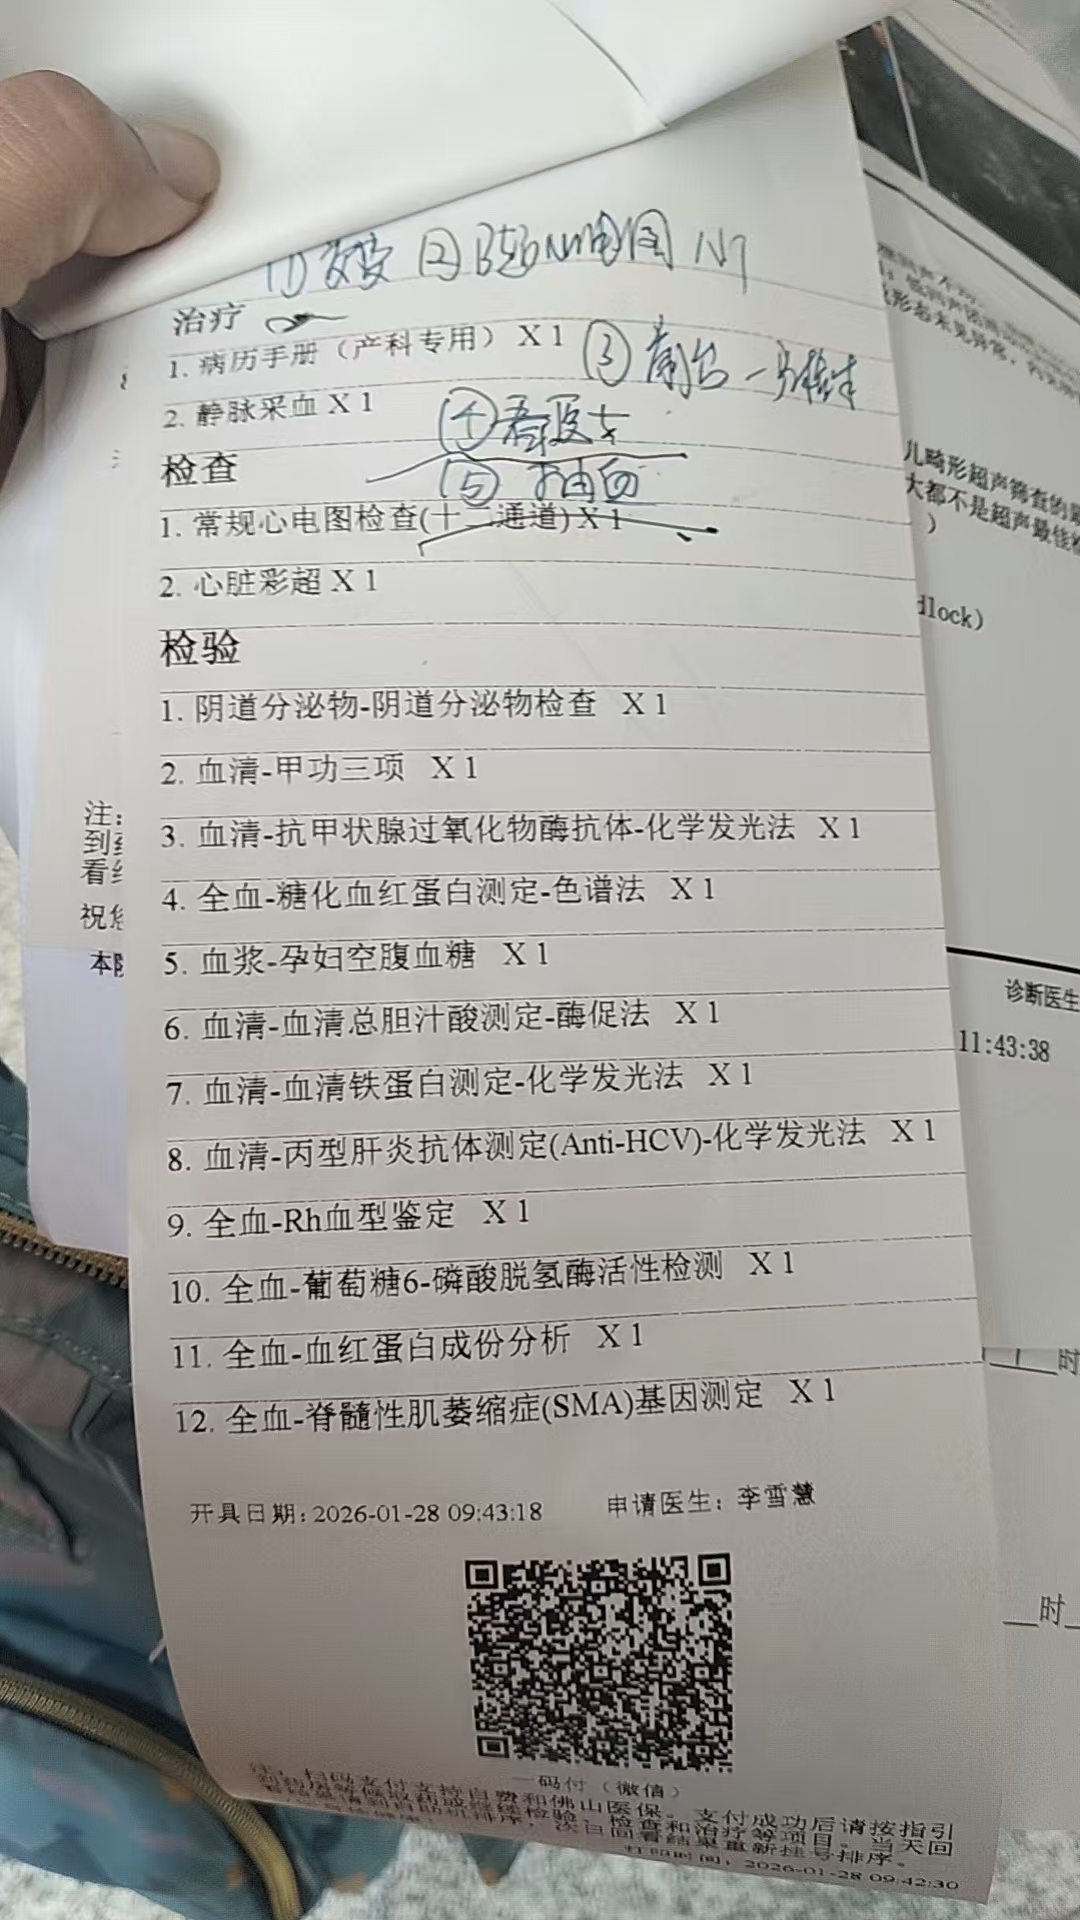 ① 交费 ② B超 心电图 1楼
治疗
1. 病历手册（产科专用） X 1
③
2. 静脉采血 X 1
④ 看医生
检查
⑤ 抽血
1. 常规心电图检查(十二通道) X 1
2. 心脏彩超 X 1
检验
1. 阴道分泌物-阴道分泌物检查 X 1
2. 血清-甲功三项 X 1
3. 血清-抗甲状腺过氧化物酶抗体-化学发光法 X 1
4. 全血-糖化血红蛋白测定-色谱法 X 1
5. 血浆-孕妇空腹血糖 X 1
6. 血清-血清总胆汁酸测定-酶促法 X 1
7. 血清-血清铁蛋白测定-化学发光法 X 1
8. 血清-丙型肝炎抗体测定(Anti-HCV)-化学发光法 X 1
9. 全血-Rh血型鉴定 X 1
10. 全血-葡萄糖6-磷酸脱氢酶活性检测 X 1
11. 全血-血红蛋白成份分析 X 1
12. 全血-脊髓性肌萎缩症(SMA)基因测定 X 1
开具日期: 2026-01-28 09:43:18 申请医生: 李雪慧
一码付（微信）
注：扫码支付支持自费和佛山医保。支付成功后请按指引
到药房等候取药或继续检验、检查和治疗等项目。当天回
看结果请到自助机排序，次日回看结果重新挂号排序。
打印时间: 2026-01-28 09:42:30
注:
到
看
祝您
本院
形态未见异常，
儿畸形超声筛查的
大都不是超声最佳
)
dlock)
诊断医生
11:43:38
时
时